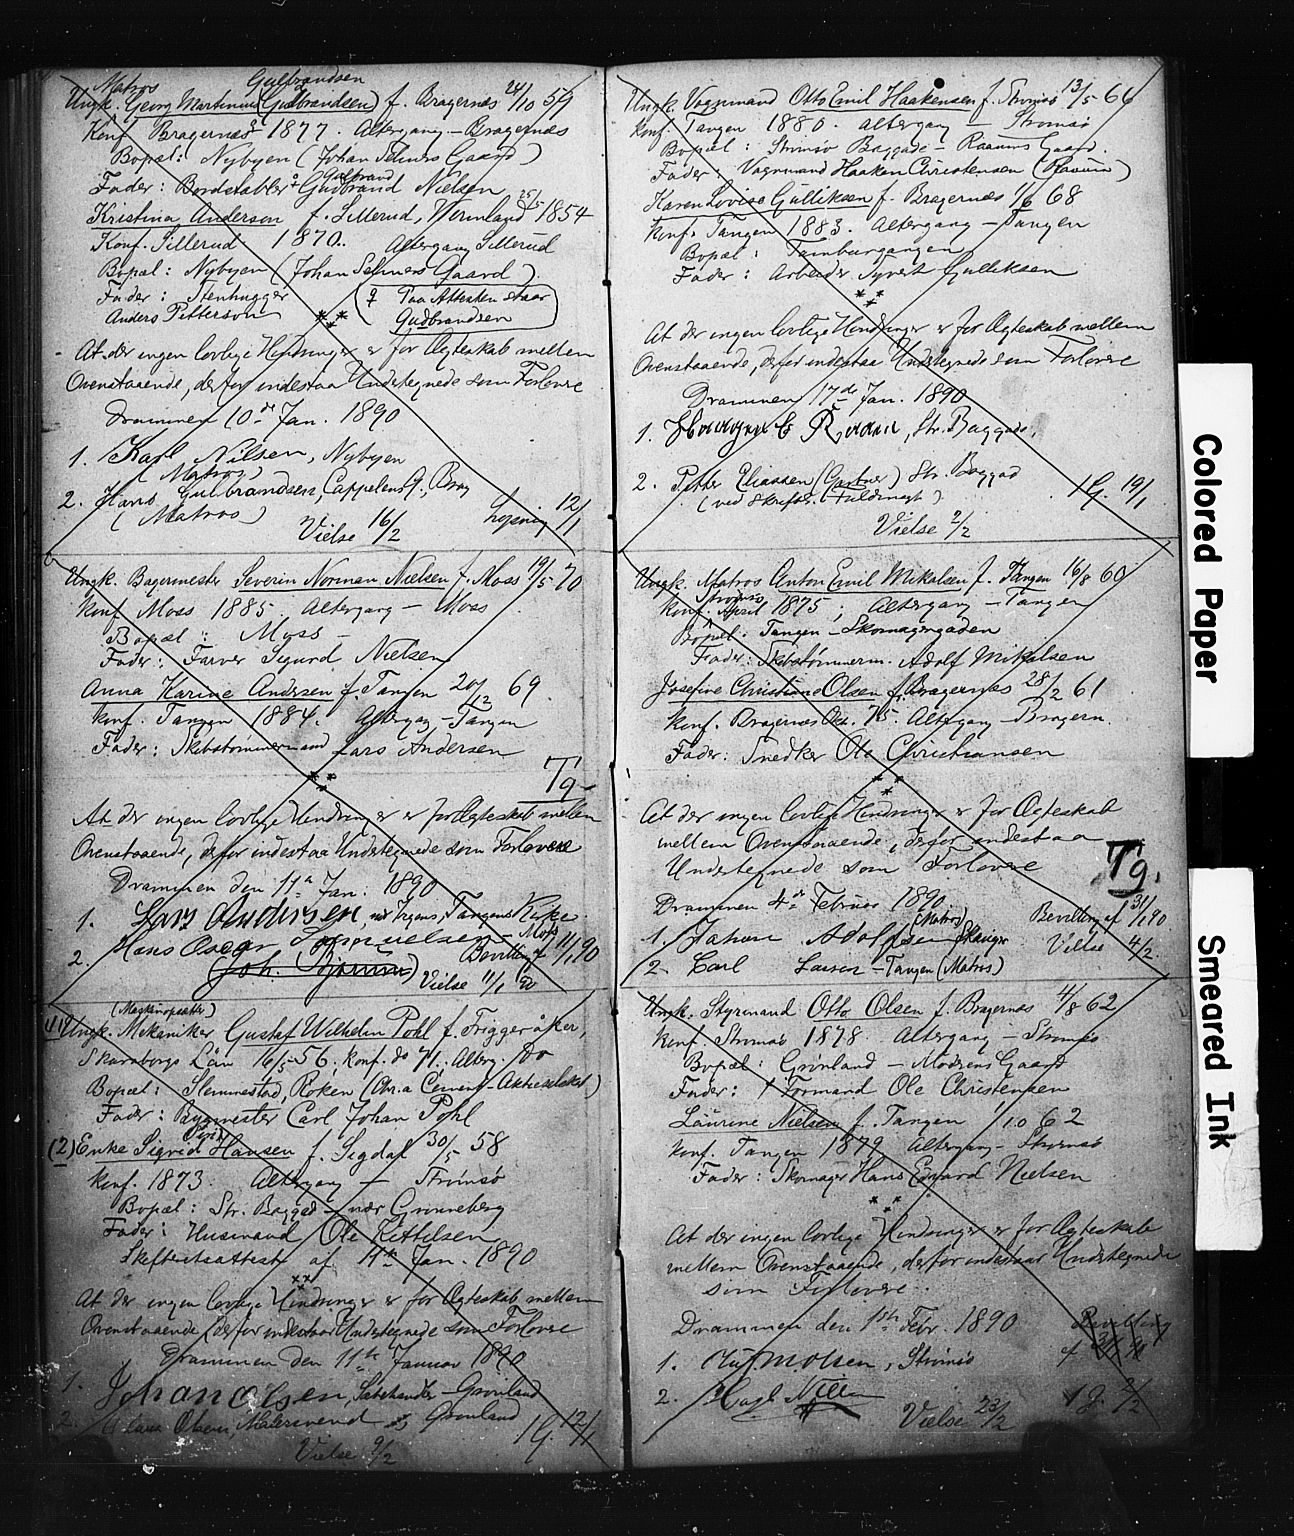 Matros Gulbrandsen
Ungk. Georg Martinius (Gudbrandsen) f. Bragernæs 24/10 59
Konf. Bragernæs 1877. Altergang – Bragernæs
Bopæl: Nybyen (Johan Selmers Gaard)
Gulbrand
Fader: Bordstabler Gudbrand Nielsen
Kristina Anderson f. Sillerud, Wermland 25/5 1854
Konf. Sillerud 1870. Altergang Sillerud
Bopæl: Nybyen (Johan Selmers Gaard)
Fader: Stenhugger
Anders Petterson
Paa Attesten staar
Gudbrandsen
At der ingen lovlige Hindringer er for Ægteskab mellem
Ovenstaaende, derfor indestaa Undertegnede som Forlovere
Drammen 10de Jan. 1890
1. Karl Nilsen, Nybyen
(Matros)
2. Hans Gulbrandsen, Cappelens G., Brag
(Matros)
Vielse 16/2 Lysning 12/1
Ungk. Bagermester Severin Norman Nielsen f. Moss 19/5 70
Konf. Moss 1885. Altergang – Moss
Bopæl: Moss –
Fader: Farver Sigurd Nielsen
Anna Karine Andersen f. Tangen 20/12 69.
Konf. Tangen 1884. Altergang – Tangen
Fader: Skibstømmermand Lars Andersen
Tg
At der ingen lovlige Hindringer er for Ægteskab mellem
Ovenstaaende, derfor indestaa Undertegnede som Forlovere
Drammen den 11te Jan. 1890
1. Lars Andersen Tangens Kirke
2. Hans Oscar Samuelsen – Moss
(Joh. Bjørum) Bevilling af 11/1 90
Vielse 11/1 90
(Maskinopsætter)
41 Ungk. Mekaniker Gustaf Wilhelm Pohl f. Friggeråker,
Skaraborgs Län 16/5 56. Konf. do 71. Alterg. Do
Bopæl: Slemmestad, Røken (Chr.a Cement-Aktieselskab)
Fader: Bygmester Carl Johan Pohl
(2) Enke Sigrid Hansen f. Sigdal 30/5 58
Konf. 1873. Altergang – Strømsø
Bopæl: Str. Baggade – nær Grønneberg
Fader: Husmand Ole Kittilsen
Skifteretsattest af 11te Jan. 1890
At der ingen lovlige Hindringer er for Ægteskab mellem
Ovenstaaende, derfor indestaar Undertegnede som Forlovere
Drammen den 11te Januar 1890
1. Johan Olsen, – Grønland
2. Claus Olsen, Malersvend Grønland
1 G. 12/1
Vielse 9/2
Ungk. Vognmand Otto Emil Haakensen f. Strømsø 13/5 66
Konf. Tangen 1880. Altergang – Strømsø
Bopæl: Strømsø Baggade – Raaums Gaard.
Fader: Vognmand Haaken Christensen (Raaum)
Karen Lovise Gulliksen f. Bragernæs 1/6 68
Konf. Tangen 1883. Altergang – Tangen
Bopæl: Tamburgangen
Fader: Arbeider Syvert Gulliksen
At der ingen lovlige Hindringer er for Ægteskab mellem
Ovenstaaende, derfor indestaa Undertegnede som Forlovere
Drammen 17de Jan. 1890
1. Haagen C Raaum, Str. Baggade.
2. Petter Eliassen (Gartner) Str. Baggad
(ved skriftl. Fuldmagt) 1 G. 19/1
Vielse 2/2
Ungk. Matros Anton Emil Mikalsen f. Tangen 16/8 60
Strømsø
Konf. April 1875; Altergang – Tangen
Bopæl: Tangen – Skomagergaden
Fader: Skibstømmerm. Adolf Mikalsen
Josefine Christiane Olsen f. Bragernæs 28/2 61
Konf. Bragernæs Okt. 75. Altergang – Bragern.
Fader: Snedker Ole Christiansen
At der ingen lovlige Hindringer er for Ægteskab
mellem Ovenstaaende, derfor indestaa
Undertegnede som Forlovere Tg.
Drammen 4de Februar 1890
1. Johan Adolfsen (Matros) Bevilling af 31/1 90
2. Carl Larsen – Tangen (Matros) Vielse 4/2
Ungk. Styrmand Otto Olsen f. Bragernæs 4/8 62
Konf. Strømsø 1878. Altergang – Strømsø
Bopæl: Grønland – Madsens Gaard
Fader: † Formand Ole Christensen
Laurine Nielsen f. Tangen 1/10 62
Konf. Tangen 1879 Altergang – Strømsø
Fader: Skomager Hans Edvard Nielsen
At der ingen lovlige Hindringer er for Ægteskab
mellem Ovenstaaende, derfor indestaar Undertegnede
som Forlovere.
Drammen den 1ste Febr. 1890 Bevilling
1. Olsen, Strømsø
2. Karl Nilsen 1 g. 2/2
Vielse 23/2
Colored Paper
Smeared Ink